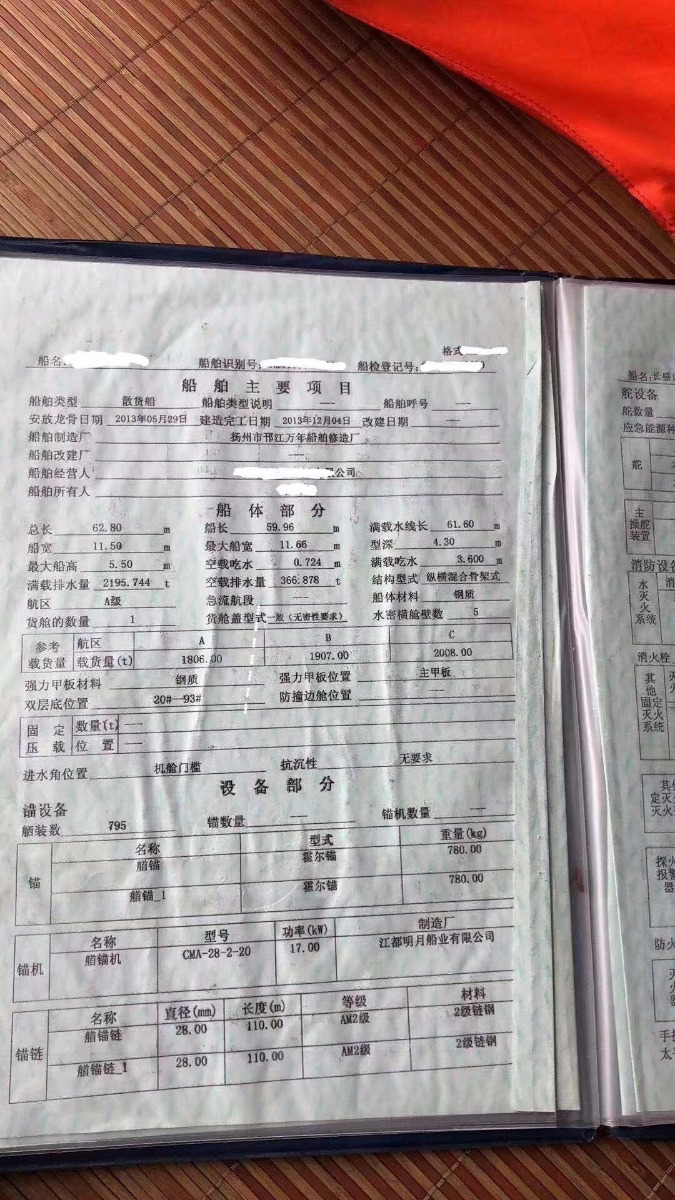 格式
船名: 船舶识别号: 船检登记号:
船舶主要项目
船舶类型 散货船 船舶类型说明 —— 船舶呼号 ——
安放龙骨日期 2013年05月29日 建造完工日期 2013年12月04日 改建日期 ——
船舶制造厂 扬州市邗江万年船舶修造厂
船舶改建厂 ——
船舶经营人 公司
船舶所有人
船体部分
总长 62.80 m 船长 59.96 m 满载水线长 61.60 m
船宽 11.50 m 最大船宽 11.66 m 型深 4.30 m
最大船高 5.50 m 空载吃水 0.724 m 满载吃水 3.600 m
满载排水量 2195.744 t 空载排水量 366.878 t 结构型式 纵横混合骨架式
航区 A级 急流航段 —— 船体材料 钢质
货舱的数量 1 货舱盖型式 一般(无密性要求) 水密横舱壁数 5
参考载货量 航区 A B C
载货量(t) 1806.00 1907.00 2008.00
强力甲板材料 钢质 强力甲板位置 主甲板
双层底位置 20#—93# 防撞边舱位置 ——
固定压载 数量(t) ——
位置 ——
进水角位置 机舱门槛 抗沉性 无要求
设备部分
锚设备
舾装数 795 锚数量 —— 锚机数量 ——
锚 名称 型式 重量(kg)
艏锚 霍尔锚 780.00
艏锚_1 霍尔锚 780.00
锚机 名称 型号 功率(kW) 制造厂
艏锚机 CMA-28-2-20 17.00 江都明月船业有限公司
锚链 名称 直径(mm) 长度(m) 等级 材料
艏锚链 28.00 110.00 AM2级 2级链钢
艏锚链_1 28.00 110.00 AM2级 2级链钢
船名:长盛
舵设备
舵数量
应急能源种
舵
主操舵装置
消防设备
水灭火系统
消火栓
其他固定灭火系统